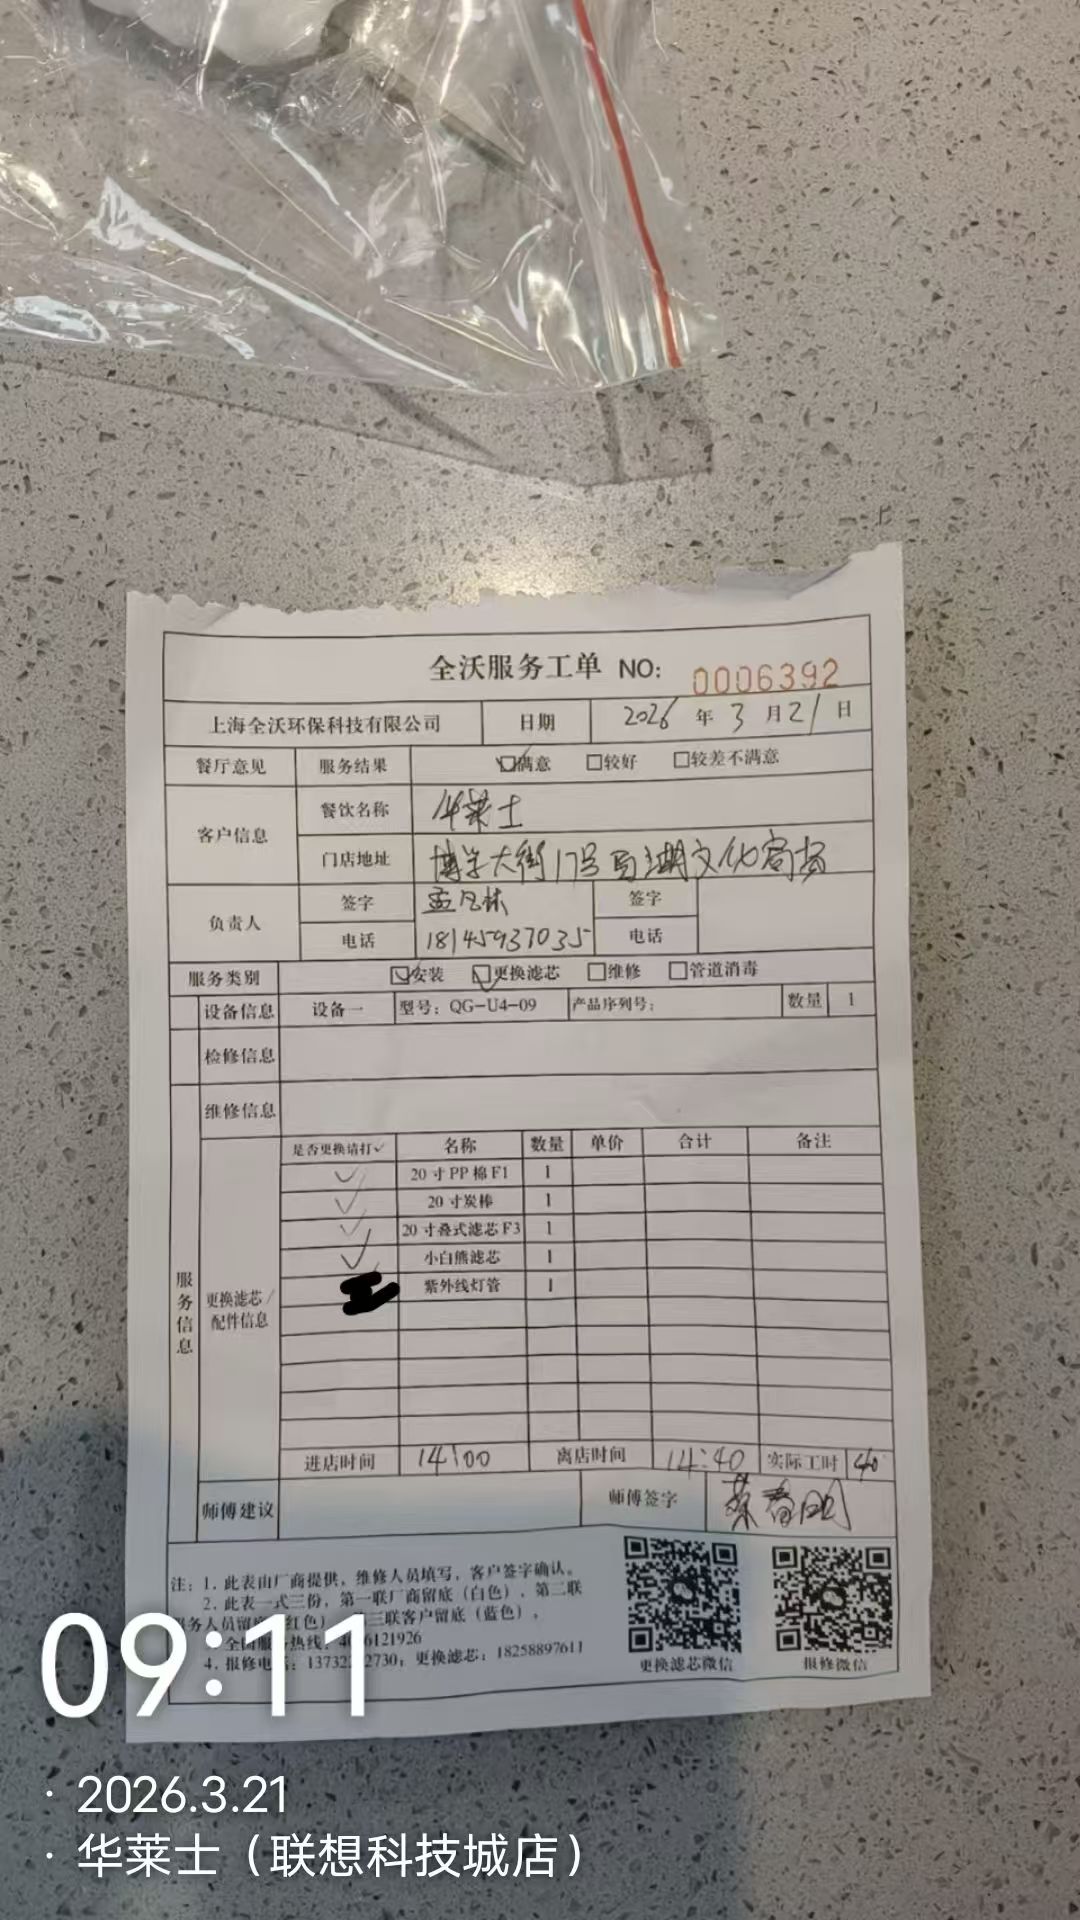 全沃服务工单 NO: 0006392
上海全沃环保科技有限公司 日期 2026 年 3 月 21 日
餐厅意见 服务结果 ☑满意 □较好 □较差不满意
客户信息 餐饮名称 华莱士
门店地址 博学大街17号 文化商场
负责人 签字 孟凡林 签字
电话 18145937035 电话
服务类别 ☑安装 ☑更换滤芯 □维修 □管道消毒
设备信息 设备一 型号：QG-U4-09 产品序列号： 数量 1
检修信息
维修信息
服务信息
更换滤芯/配件信息
是否更换请打✓ 名称 数量 单价 合计 备注
✓ 20寸PP棉F1 1
✓ 20寸炭棒 1
✓ 20寸叠式滤芯F3 1
✓ 小白熊滤芯 1
紫外线灯管 1
进店时间 14:00 离店时间 14:40 实际工时 40
师傅建议 师傅签字
注：1．此表由厂商提供，维修人员填写，客户签字确认。
2．此表一式三份，第一联厂商留底（白色），第二联
服务人员留底（红色），第三联客户留底（蓝色），
全国服务热线：4006121926
4．报修电话：1373 2730；更换滤芯：18258897611
更换滤芯微信 报修微信
09:11
· 2026.3.21
· 华莱士（联想科技城店）